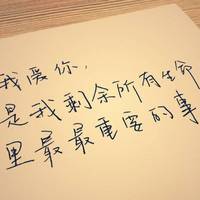 我爱你,
是我剩余所有生命
里最最重要的事